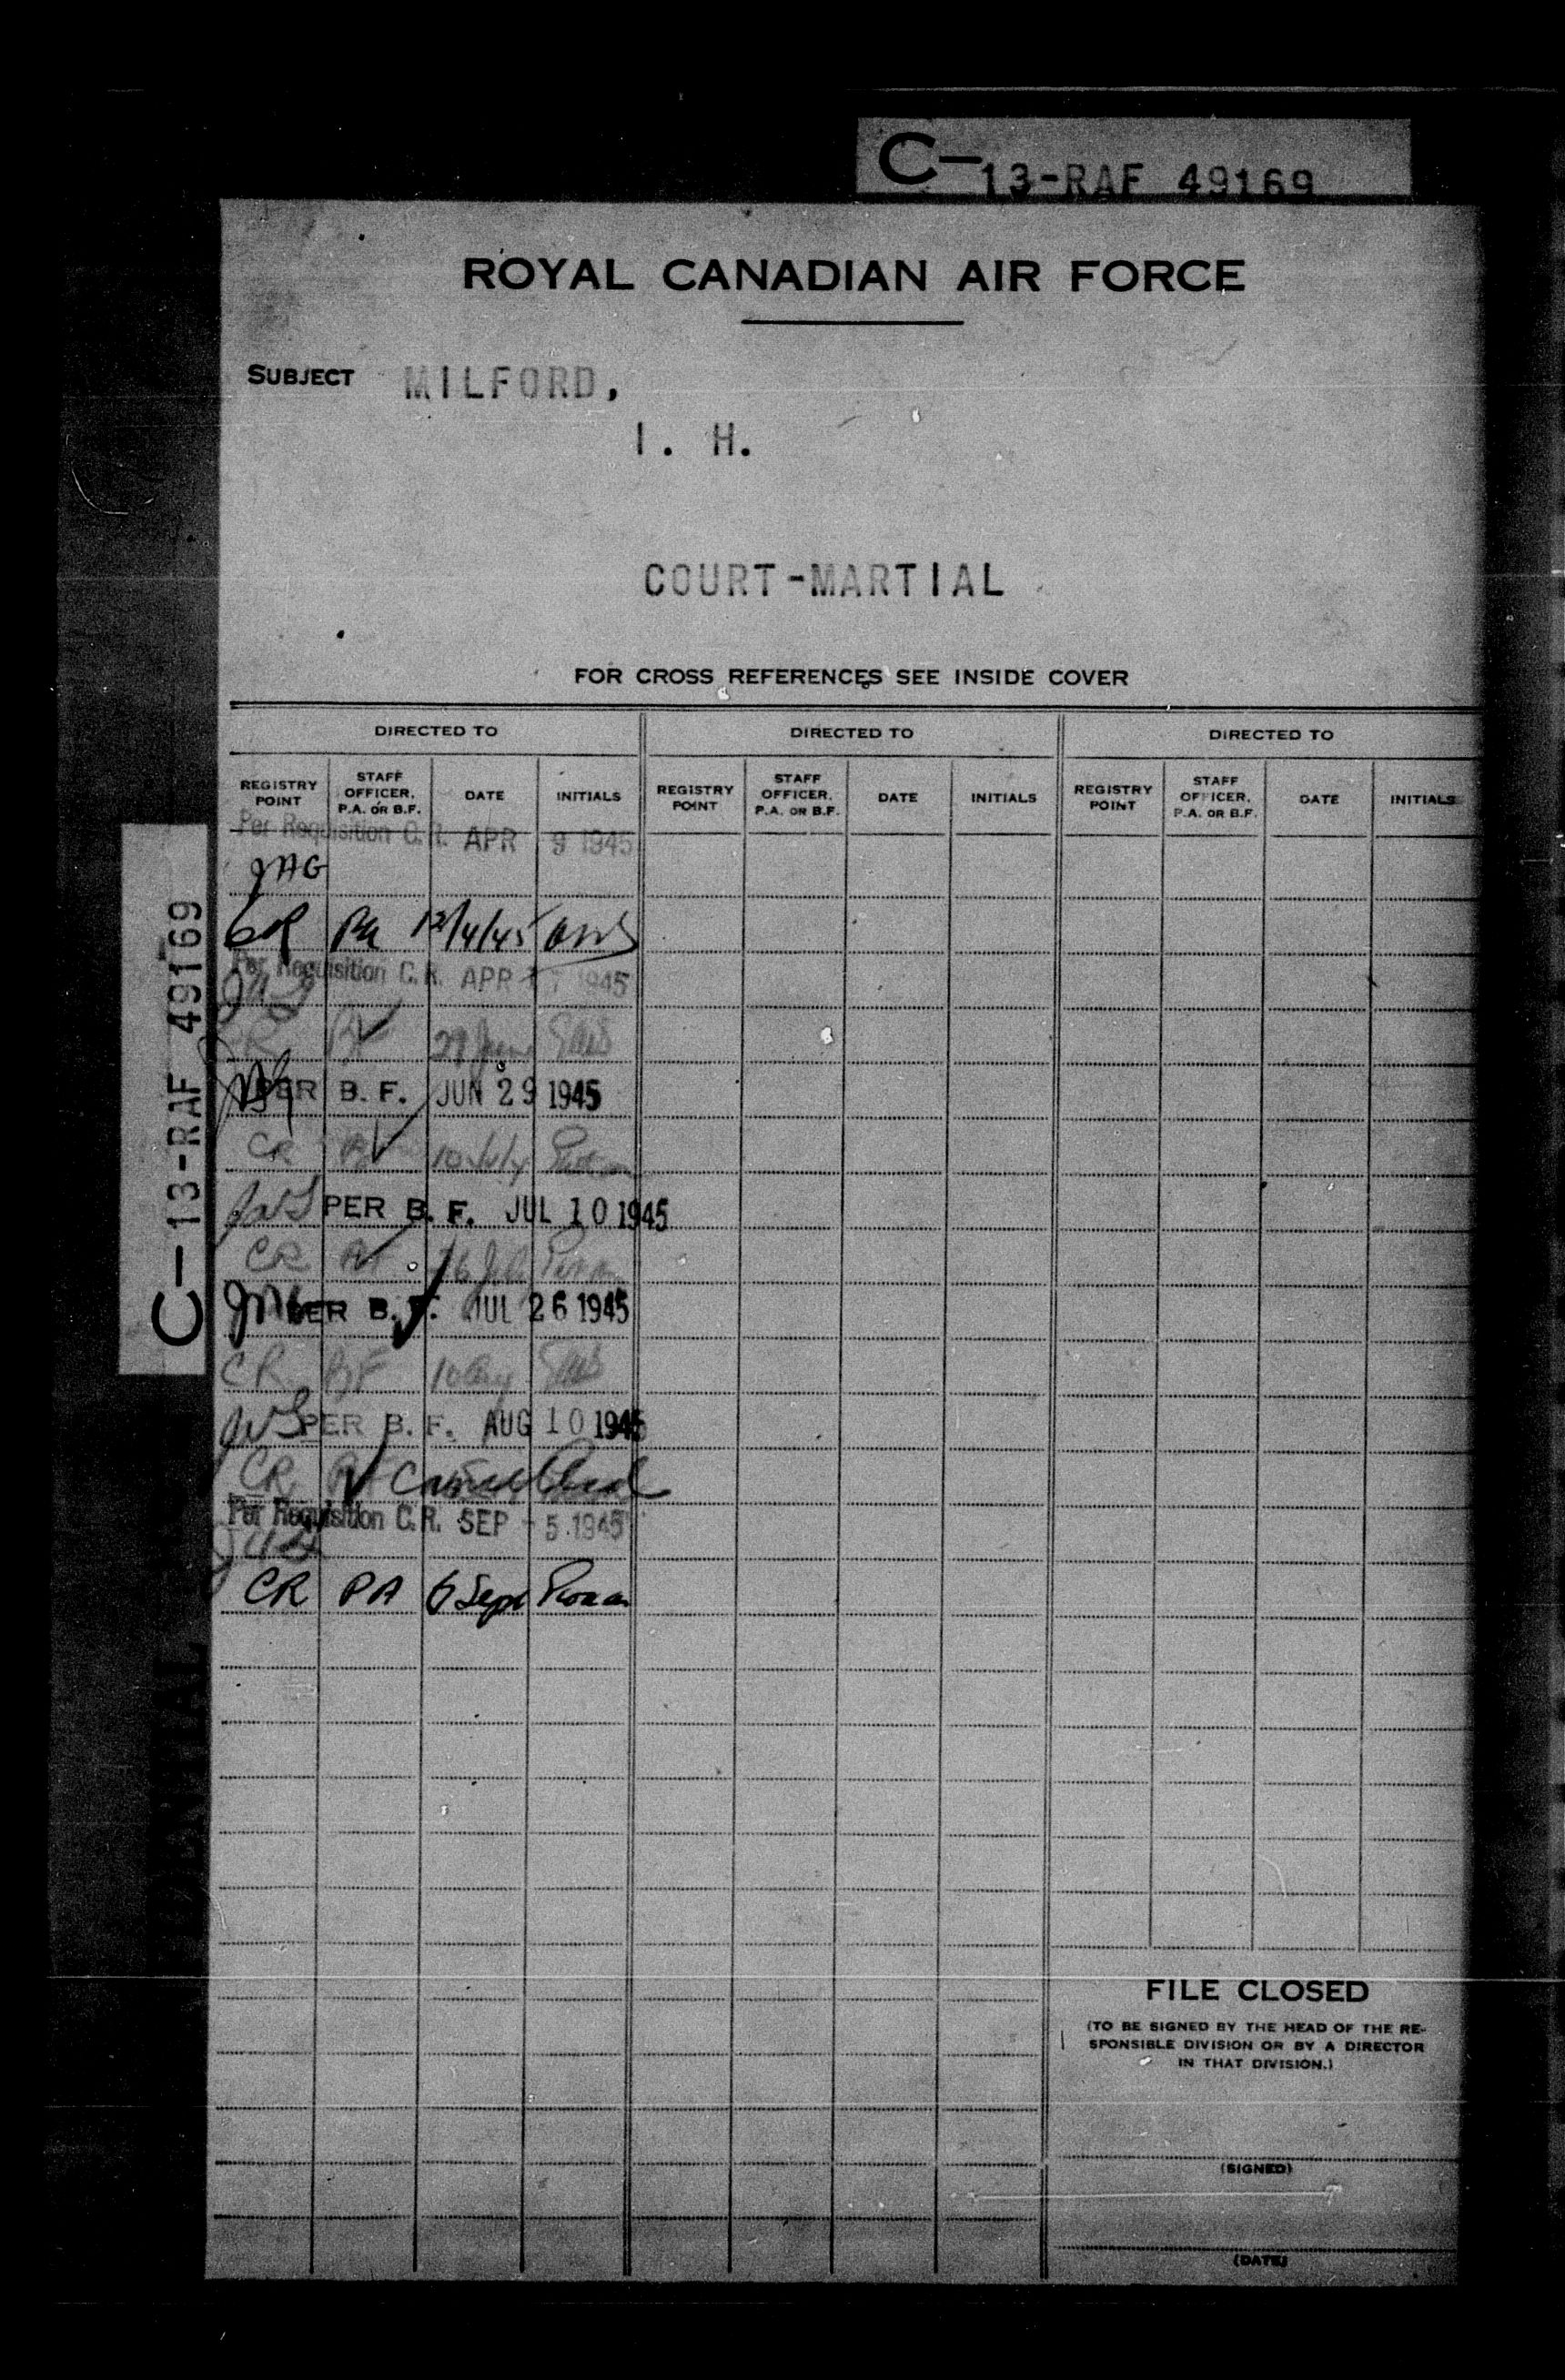 C-13-RAF 49169
ROYAL CANADIAN AIR FORCE
SUBJECT MILFORD,
I. H.
COURT-MARTIAL
FOR CROSS REFERENCES SEE INSIDE COVER
DIRECTED TO DIRECTED TO DIRECTED TO
REGISTRY POINT STAFF OFFICER, P.A. OR B.F. DATE INITIALS REGISTRY POINT STAFF OFFICER, P.A. OR B.F. DATE INITIALS REGISTRY POINT STAFF OFFICER, P.A. OR B.F. DATE INITIALS
Per Requisition C.R. APR 9 1945
JAG
CR PA 12/4/45
Per Requisition C.R. APR 1945
CR BF 29 June
PER B. F. JUN 29 1945
CR BF
PER B. F. JUL 10 1945
CR BF 26 July
PER B. F. JUL 26 1945
CR BF 10 Aug
PER B. F. AUG 10 1945
CR BF Cancelled
Per Requisition C.R. SEP - 5 1945
CR PA 6 Sept
C-13-RAF 49169
FILE CLOSED
(TO BE SIGNED BY THE HEAD OF THE RE-
SPONSIBLE DIVISION OR BY A DIRECTOR
IN THAT DIVISION.)
(SIGNED)
(DATE)